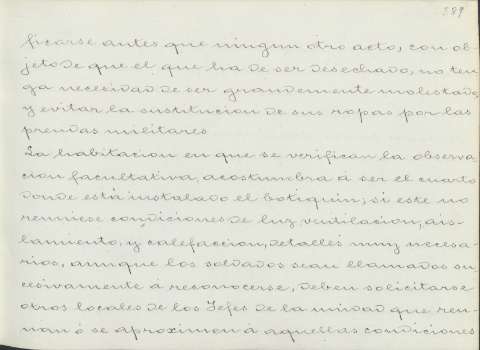 389
ficarse antes que ningun otro acto, con ob-
jeto de que el que ha de ser desechado, no ten
ga necesidad de ser grandemente molestado,
y evitar la sustitucion de sus ropas por las
prendas militares
La habitacion en que se verifican la observa
cion facultativa, acostumbra á ser el cuarto
donde está instalado el botiquin; si este no
reuniese condiciones de luz, ventilacion, ais-
lamiento, y calefaccion, detalles muy necesa-
rios, aunque los soldados sean llamados su-
cesivamente á reconocerse, deben solicitarse
otros locales de los Jefes de la unidad que reu-
nan ó se aproximen á aquellas condiciones